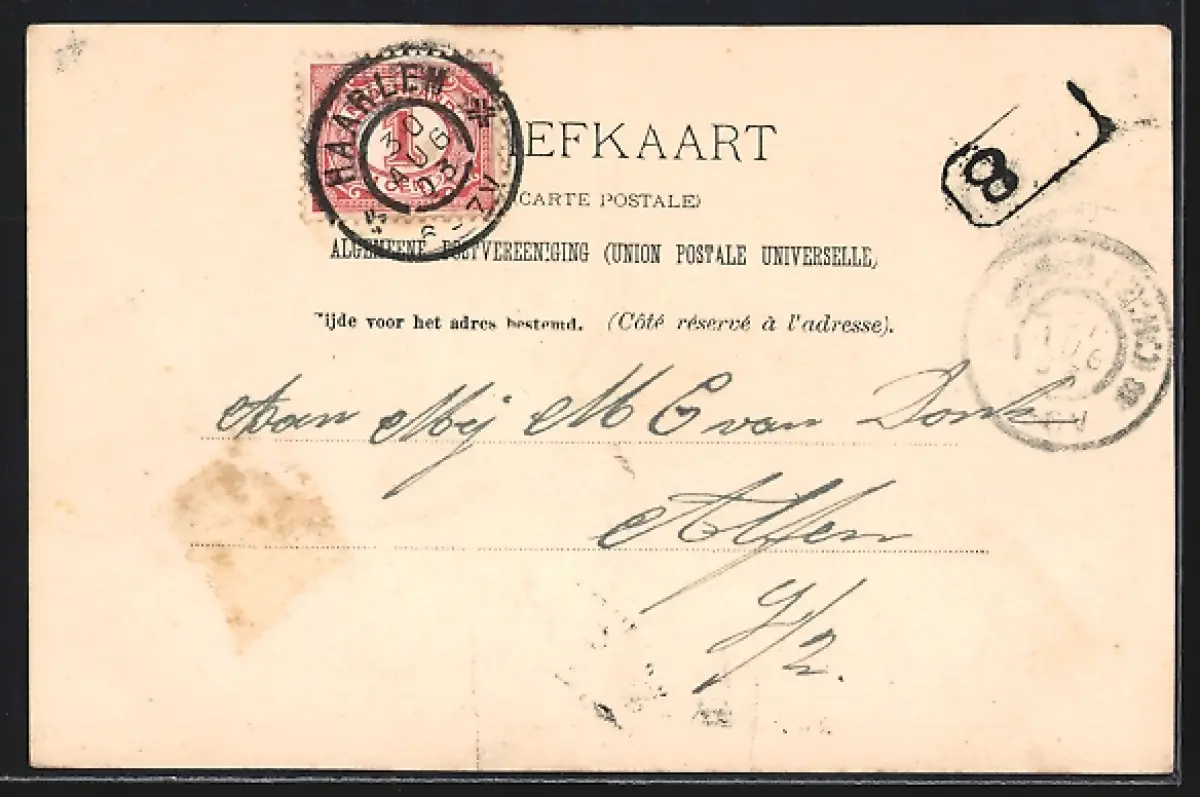 HAARLEM
30 AUG 03
6-7N
1
CENT
EFKAART
(CARTE POSTALE)
ALGEMEENE POSTVEREENIGING (UNION POSTALE UNIVERSELLE)
ijde voor het adres bestemd. (Côté réservé à l'adresse).
8
Aan Mej M C van Donk
Alfen